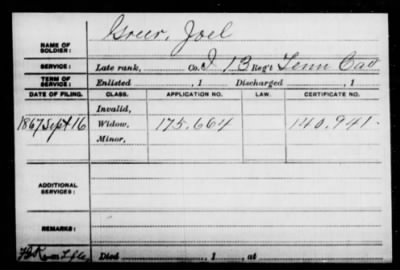 Greer, Joel
NAME OF SOLDIER:
SERVICE: Late rank, Co. I 13 Reg't Tenn Cav
TERM OF SERVICE: Enlisted , 1 Discharged , 1
DATE OF FILING. CLASS. APPLICATION NO. LAW. CERTIFICATE NO.
Invalid,
1867 Sept 16 Widow, 175.664 140.941.
Minor,
ADDITIONAL SERVICES:
REMARKS:
Died , 1 , at